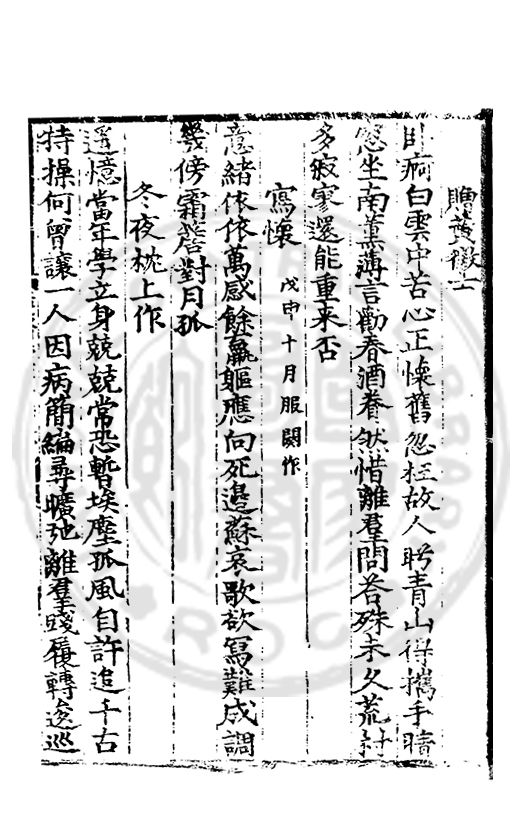 贈黃徵士
臥病白雲中苦心正懷舊忽枉故人眄青山得攜手晴
窓坐南薰薄言勸春酒眷然惜離羣問荅殊未久荒村
多寂寥還能重來否
寫懷 戊申十月服闋作
意緒依依萬感餘羸軀應向死邊蘇哀歌欲寫難成調
幾傍霜簷對月孤
冬夜枕上作
遥憶當年學立身兢兢常恐暫埃塵孤風自許追千古
特操何曾讓一人因病簡編尋曠弛離羣踐履轉逡巡